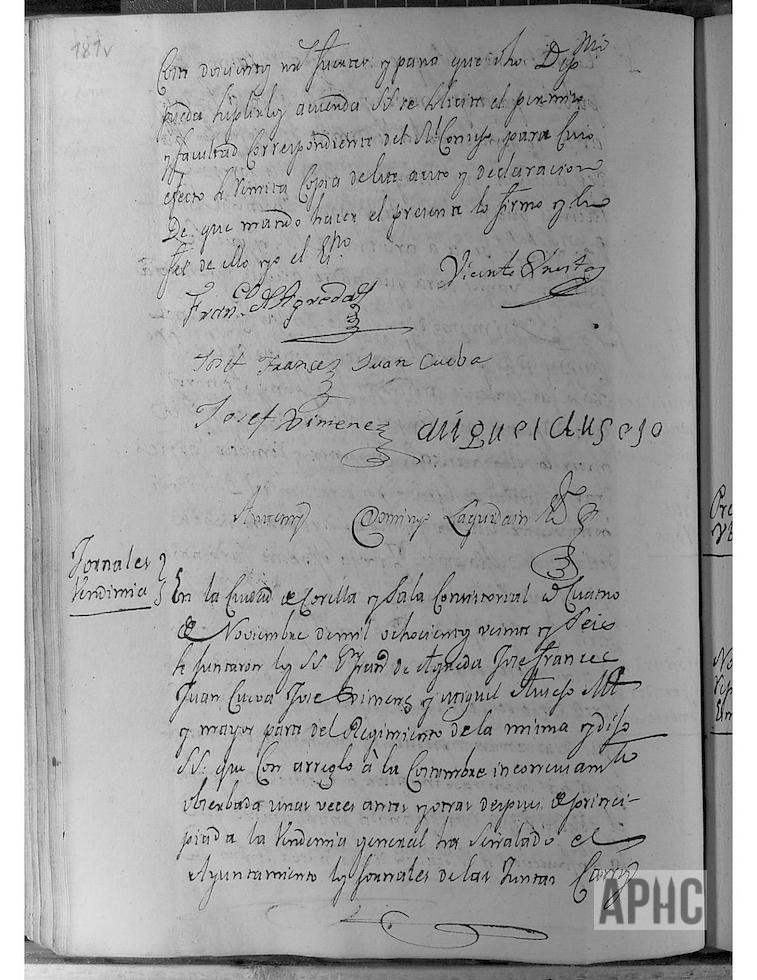 181v
Con docientos mil fuertes y para que dho Dep.nio
pueda suplirlos acuerda SS. se solicite el permiso
y facultad Correspondiente del Rl. Consejo para Cuio
efecto se remita Copia de este auto y declaracion
De que mando hacer el presente lo firmo y hice
fee de ello yo el Essno.
Franco. de Agreda Vicente
Josef Frances Juan Cueba
Josef Ximenez Miguel Ausejo
Antemi Domingo Laquidain
Jornales
Vendimia
En la Ciudad de Corella y Sala Consistorial a Cuatro
de Noviembre de mil ochocientos veinte y Seis
se Juntaron los SS. Dn. Franco. de Agreda Jose Frances
Juan Cueva Jose Ximenez y Miguel Ausejo Alc
y mayor parte del Regimiento de la misma y dijo
SS. que Con arreglo à la Costumbre inconcusamte
obserbada unas veces antes y otras despues de princi-
piada la Vendimia general ha Señalado el
Ayuntamiento los Jornales de las Juntas Carros
APHC